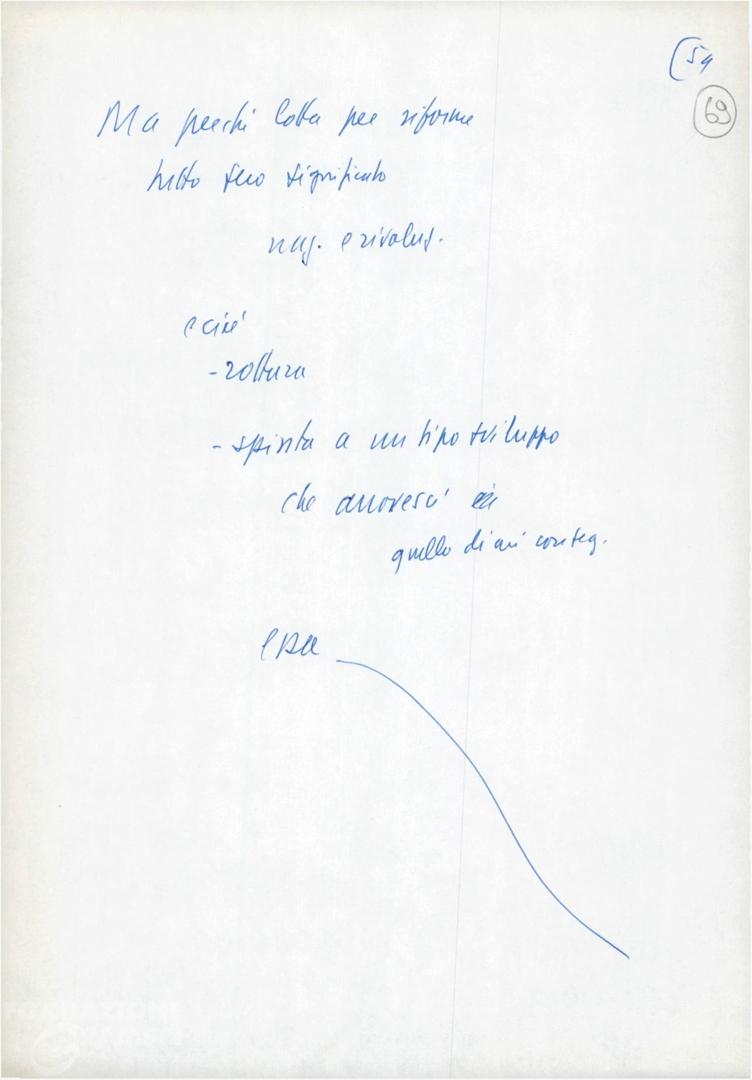 (54
69
Ma perché lotta per riforme
tutto suo significato
e rivoluz.
e cioè
- rottura
- spinta a un tipo sviluppo
che
quello di cui conseg.
FONDAZIONE